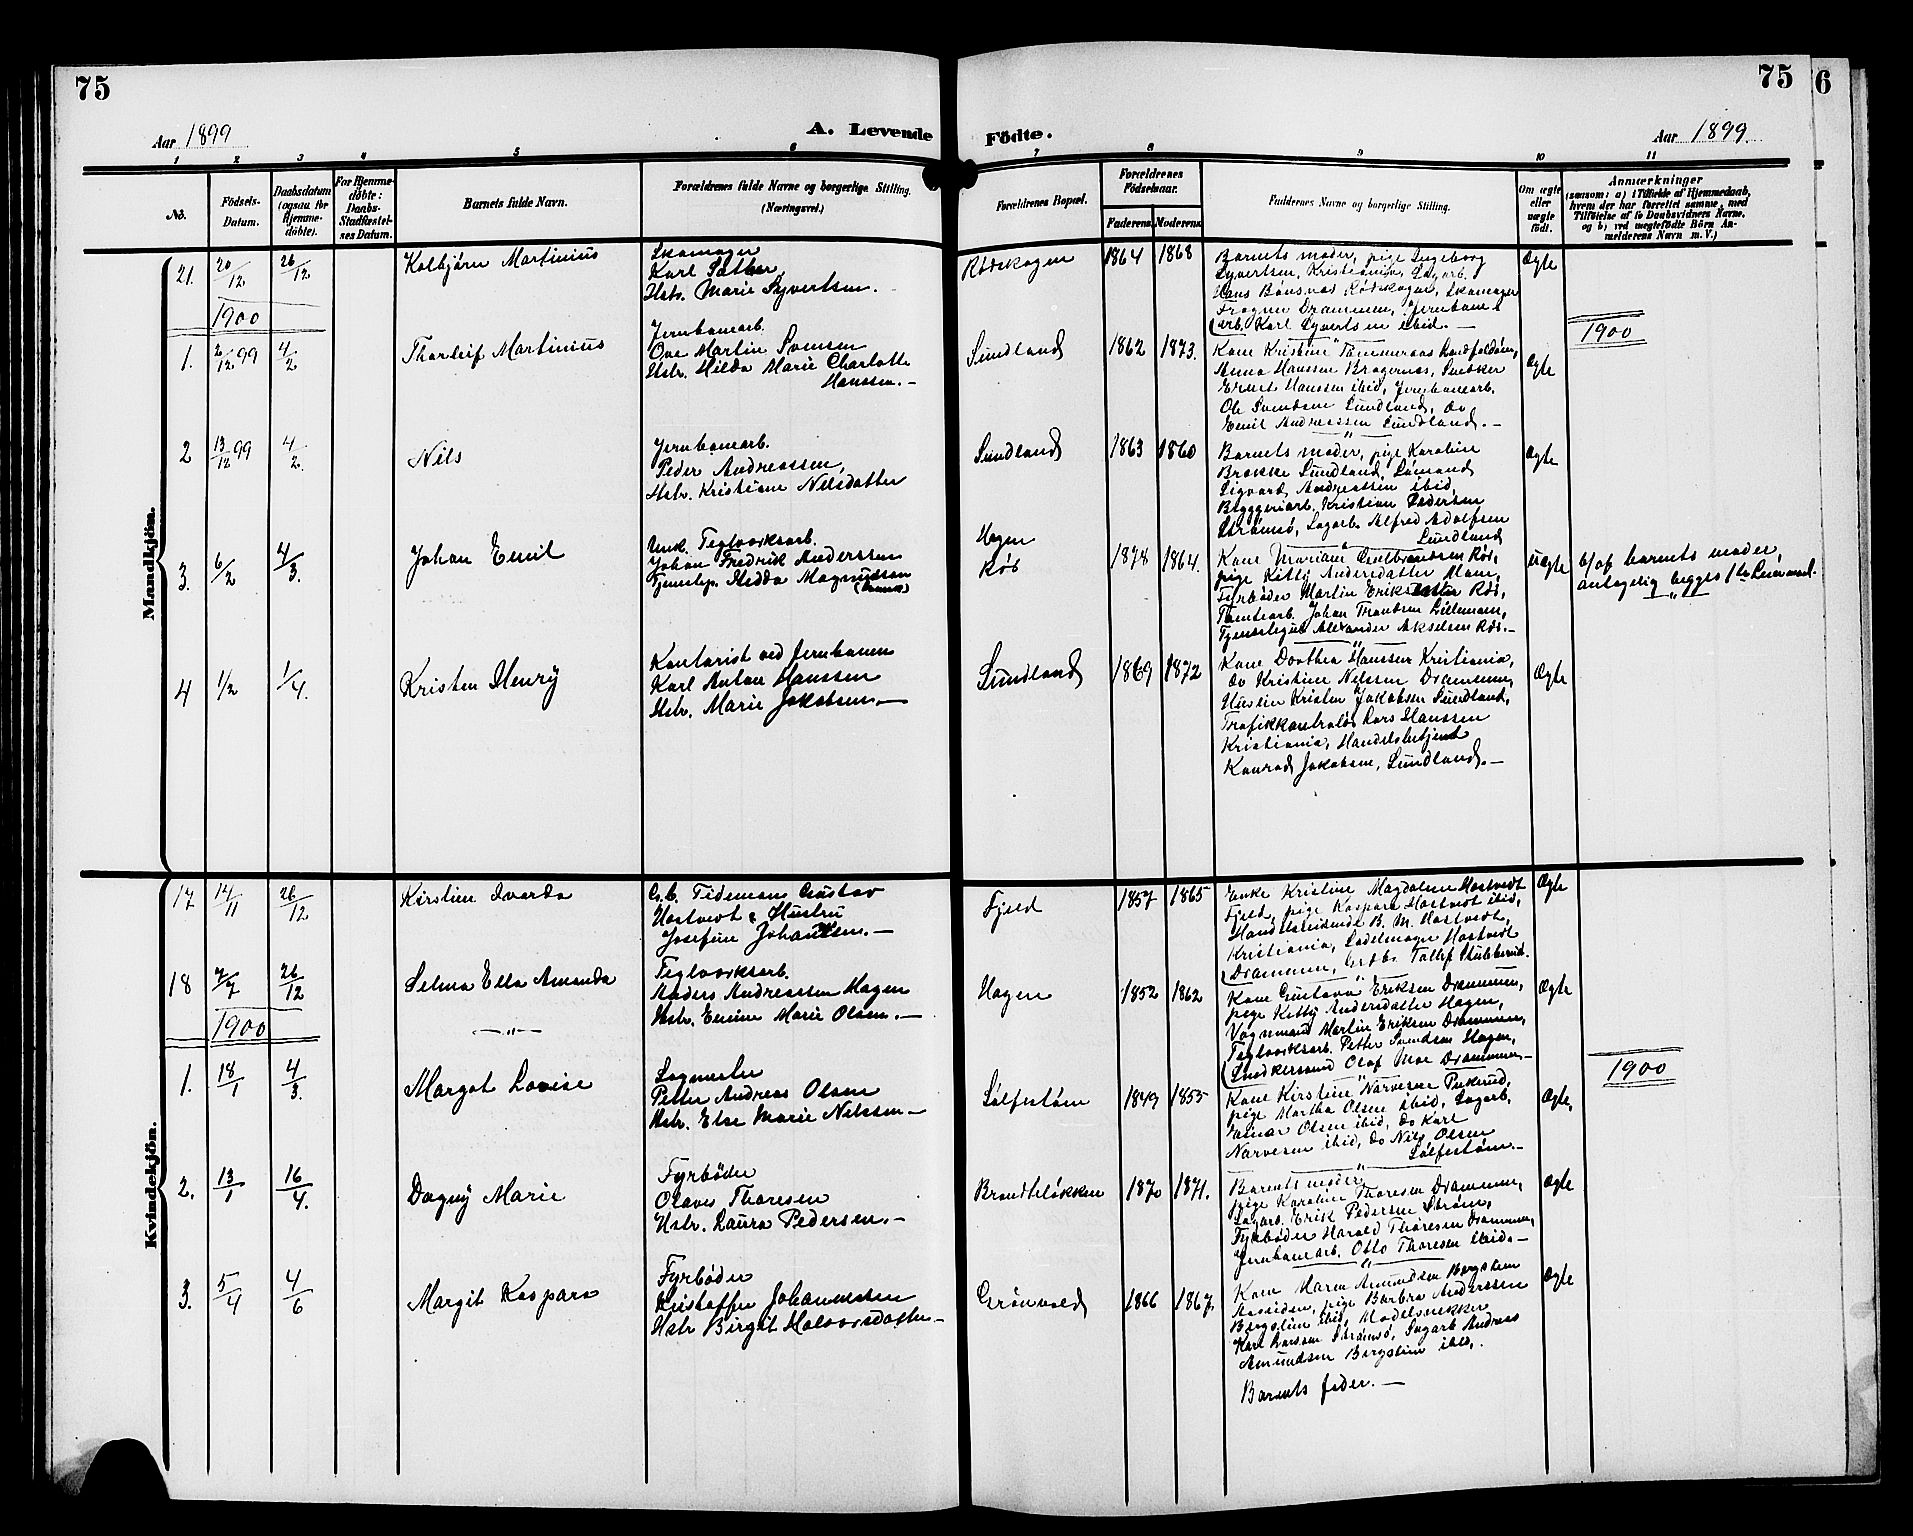 75
75
6
Aar 1899
A. Levende
Födte.
Aar 1899.
1 2 3 4 5 6 7 8 9 10 11
No.
Födsels-
Datum.
Daabsdatum
(ogsaa for
Hjemme-
döbte).
For Hjemme-
döbte:
Daabs-
Stadfæstel-
ses Datum.
Barnets fulde Navn.
Forældrenes fulde Navne og borgerlige Stilling.
(Næringsvei.)
Forældrenes Bopæl.
Forældrenes
Födselsaar.
Faderens. Moderens.
Faddernes Navne og borgerlige Stilling.
Om ægte
eller
uægte
födt.
Anmærkninger
(saasom: a) i Tilfælde af Hjemmedaab,
hvem der har forrettet samme, med
Tilföielse af to Daabsvidners Navne,
og b) ved uægtefödte Börn An-
melderens Navn m. V.)
Mandkjön.
21. 20/12 26/12 Kolbjörn Martinius
Skomager
Karl Sather,
Hstr. Marie Syvertsen.
Rødskogen 1864 1868
Barnets moder, pige Ingeborg
Syvertsen, Kristiania, Sagarb.
Hans Bønsnæs Rødskogen, Skomager
Frogner Drammen, Jernbane-
arb. Karl Syvertsen ibid. —
Ægte
1900
1900
1. 2/12 99 4/2 Thorleif Martinius
Jernbanearb.
Ove Martin Svensen
Hstr. Hilda Marie Charlotte
Hanssen. —
Sundland 1862 1873.
Kone Kristine Tammeraas
Anna Hanssen Bragernæs, Snekker
Ernst Hanssen ibid, Jernbanearb.
Ole Svendsen Sundland, do
Emil Andreassen Sundland. —
Ægte
2 13/12 99 4/2. Nils
Jernbanearb.
Peder Andreassen,
Hstr. Kristiane Nilsdatter
Sundland 1863 1860
Barnets moder, pige Karoline
Brække Sundland, Sømand
Sigvard Andreassen ibid,
Bryggeriarb. Kristian Pedersen
Strømsø, Sagarb. Alfred Adolfsen
Sundland
Ægte
3. 6/2 4/3. Johan Emil
Unk. Teglværksarb.
Johan Fredrik Anderssen
Tjenestep. Hedda Magnusson
Hagen
Røs 1878 1864.
Kone Mariane Gulbrandsen Røs,
pige Kitty Andersdatter
Fyrbøder Martin Røs,
Tomtearb. Johan
Alexander Akselsen Røs. —
uægte
b/of barnets moder,
antagelig begges 1ste Leiermaal.
4 1/2 1/4. Kristen Henry
Kontorist ved Jernbanen
Karl Anton Hanssen
Hstr. Marie Jakobsen. —
Sundland 1869 1872
Kone Dorthea Hanssen Kristiania,
do Kristine Nilssen Drammen,
Kristen Jakobsen Sundland,
Trafikkontrolør Lars Hanssen
Kristiania, Handelsbetjent
Konrad Jakobsen, Sundland. —
Ægte
Kvindekjön.
17 14/11 26/12 Kirstine Ivarda
G.b. Tideman Gustav
Hostvedt & Hustru
Josefine Johansen. —
Fjeld 1857 1865
Enke Kristine Magdalene Hostvedt
Fjeld, pige Kaspara Hostvedt ibid,
Handelsreisende B. M. Hostvedt,
Kristiania, Sadelmager Hostvedt
Drammen, Grdbr. Tollef Stubberud.
Ægte
18 7/7 26/12 Selma Ella Amanda
Teglværksarb.
Anders Andreassen Hagen
Hstr. Emine Marie Olsen. —
Hagen 1852 1862
Kone Gustava Eriksen Drammen,
pige Kitty Andersdatter Hagen,
Vognmand Martin Eriksen Drammen,
Teglværksarb. Petter Svendsen Hagen,
Snekkersvend Olaf Moe Drammen —
Ægte
1900 —"—
1900
1. 18/1 4/3. Margot Lovise
Sagmester
Petter Andreas Olsen
Hstr. Else Marie Nilssen —
Sølfestøen 1849 1855
Kone Kirstine Narvesen Pukerud,
pige Martha Olsen ibid, Sagarb.
Olsen ibid, do Karl
Narvesen ibid, do Nils Olsen
Sølfestøen —
Ægte.
2. 13/1 16/4. Dagny Marie
Fyrbøder
Olaves Thoresen
Hstr. Laura Pedersen. —
Brandtløkken 1870 1871.
Barnets moder,
pige Karoline Thoresen Drammen,
Sagarb. Erik Pedersen Strøm,
Fyrbøder Harald Thoresen Drammen,
Jernbanearb. Otto Thoresen ibid. —
Ægte
3. 5/4 4/6 Margit Kaspara
Fyrbøder
Kristoffer Johannessen
Hstr Birgit Halvorsdatter —
Grønvold 1866 1867.
Kone Maren Amundsen Bergslien
pige Barbra Anderssen
Bergslien ibid, Modelsnekker
Karl Larssen Strømsø, Sagarb Andreas
Amundsen Bergslien ibid.
Barnets fader. —
Ægte